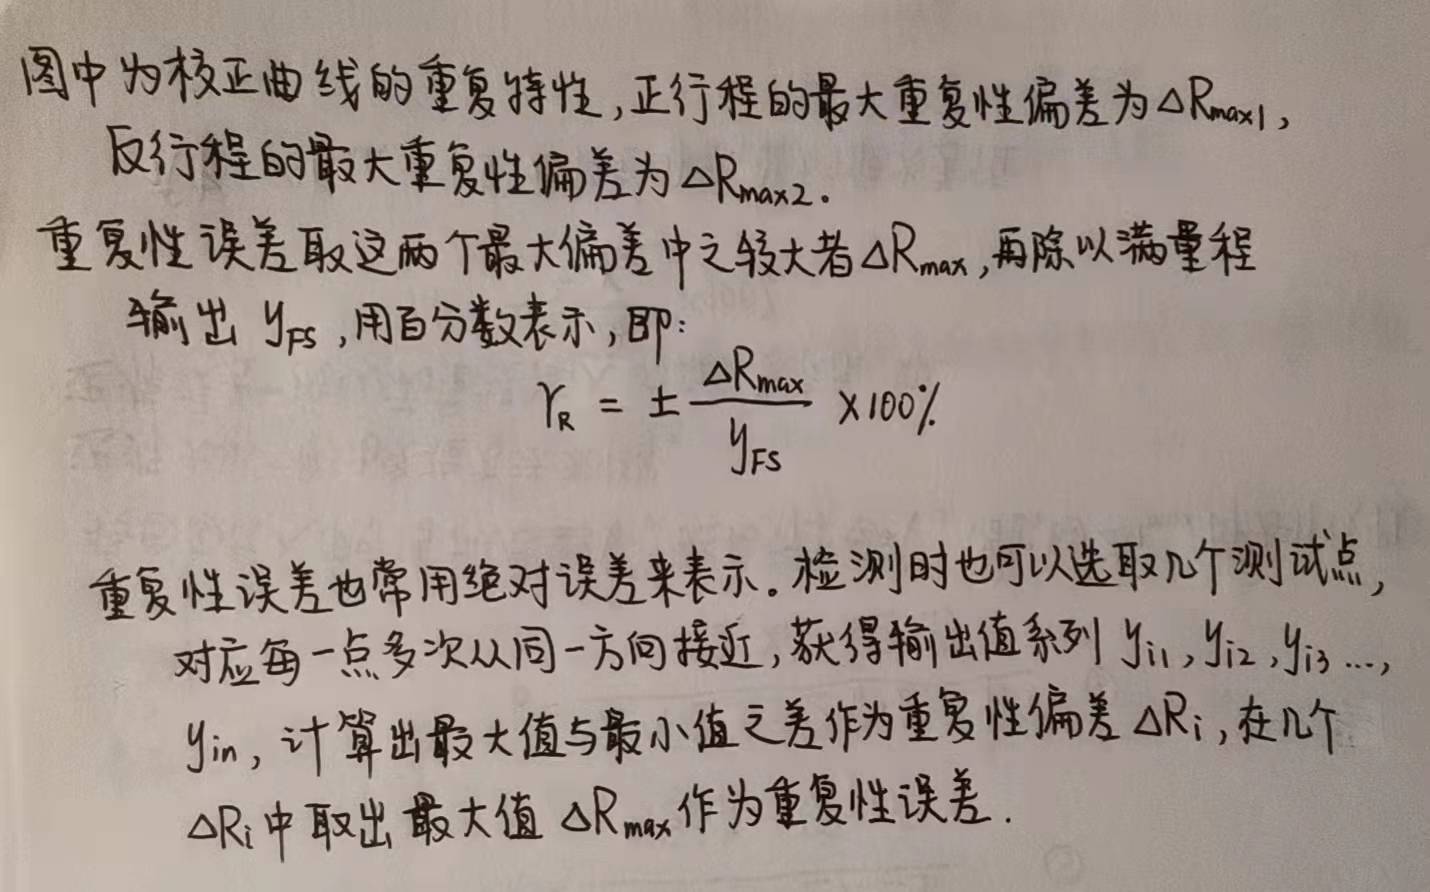 图中为校正曲线的重复特性,正行程的最大重复性偏差为△Rmax1,
反行程的最大重复性偏差为△Rmax2。
重复性误差取这两个最大偏差中之较大者△Rmax,再除以满量程
输出 yFS,用百分数表示,即:
γR = ± △Rmax / yFS ×100%
重复性误差也常用绝对误差来表示。检测时也可以选取几个测试点,
对应每一点多次从同一方向接近,获得输出值系列 yi1,yi2,yi3…,
yin,计算出最大值与最小值之差作为重复性偏差△Ri,在几个
△Ri中取出最大值△Rmax作为重复性误差.